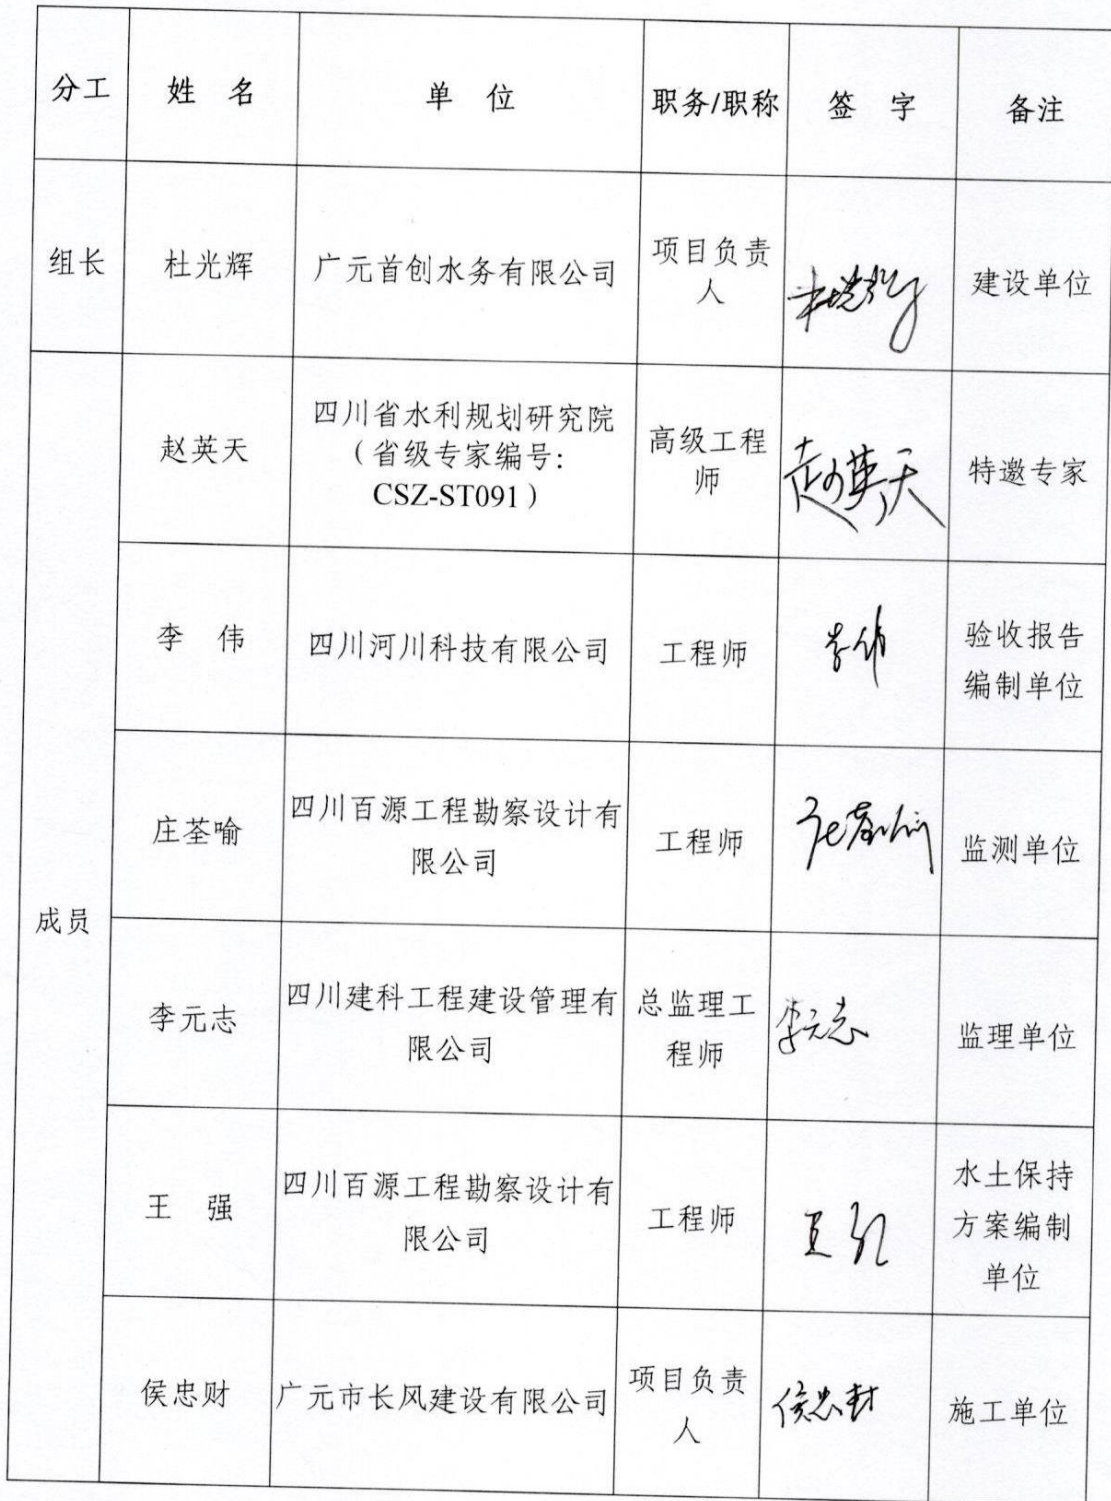 分工 姓 名 单 位 职务/职称 签 字 备注
组长 杜光辉 广元首创水务有限公司 项目负责
人 杜光辉 建设单位
成员
赵英天 四川省水利规划研究院
（省级专家编号：
CSZ-ST091） 高级工程
师 赵英天 特邀专家
李 伟 四川河川科技有限公司 工程师 李伟 验收报告
编制单位
庄荃喻 四川百源工程勘察设计有
限公司 工程师 庄荃喻 监测单位
李元志 四川建科工程建设管理有
限公司 总监理工
程师 李元志 监理单位
王 强 四川百源工程勘察设计有
限公司 工程师 王强 水土保持
方案编制
单位
侯忠财 广元市长风建设有限公司 项目负责
人 侯忠财 施工单位